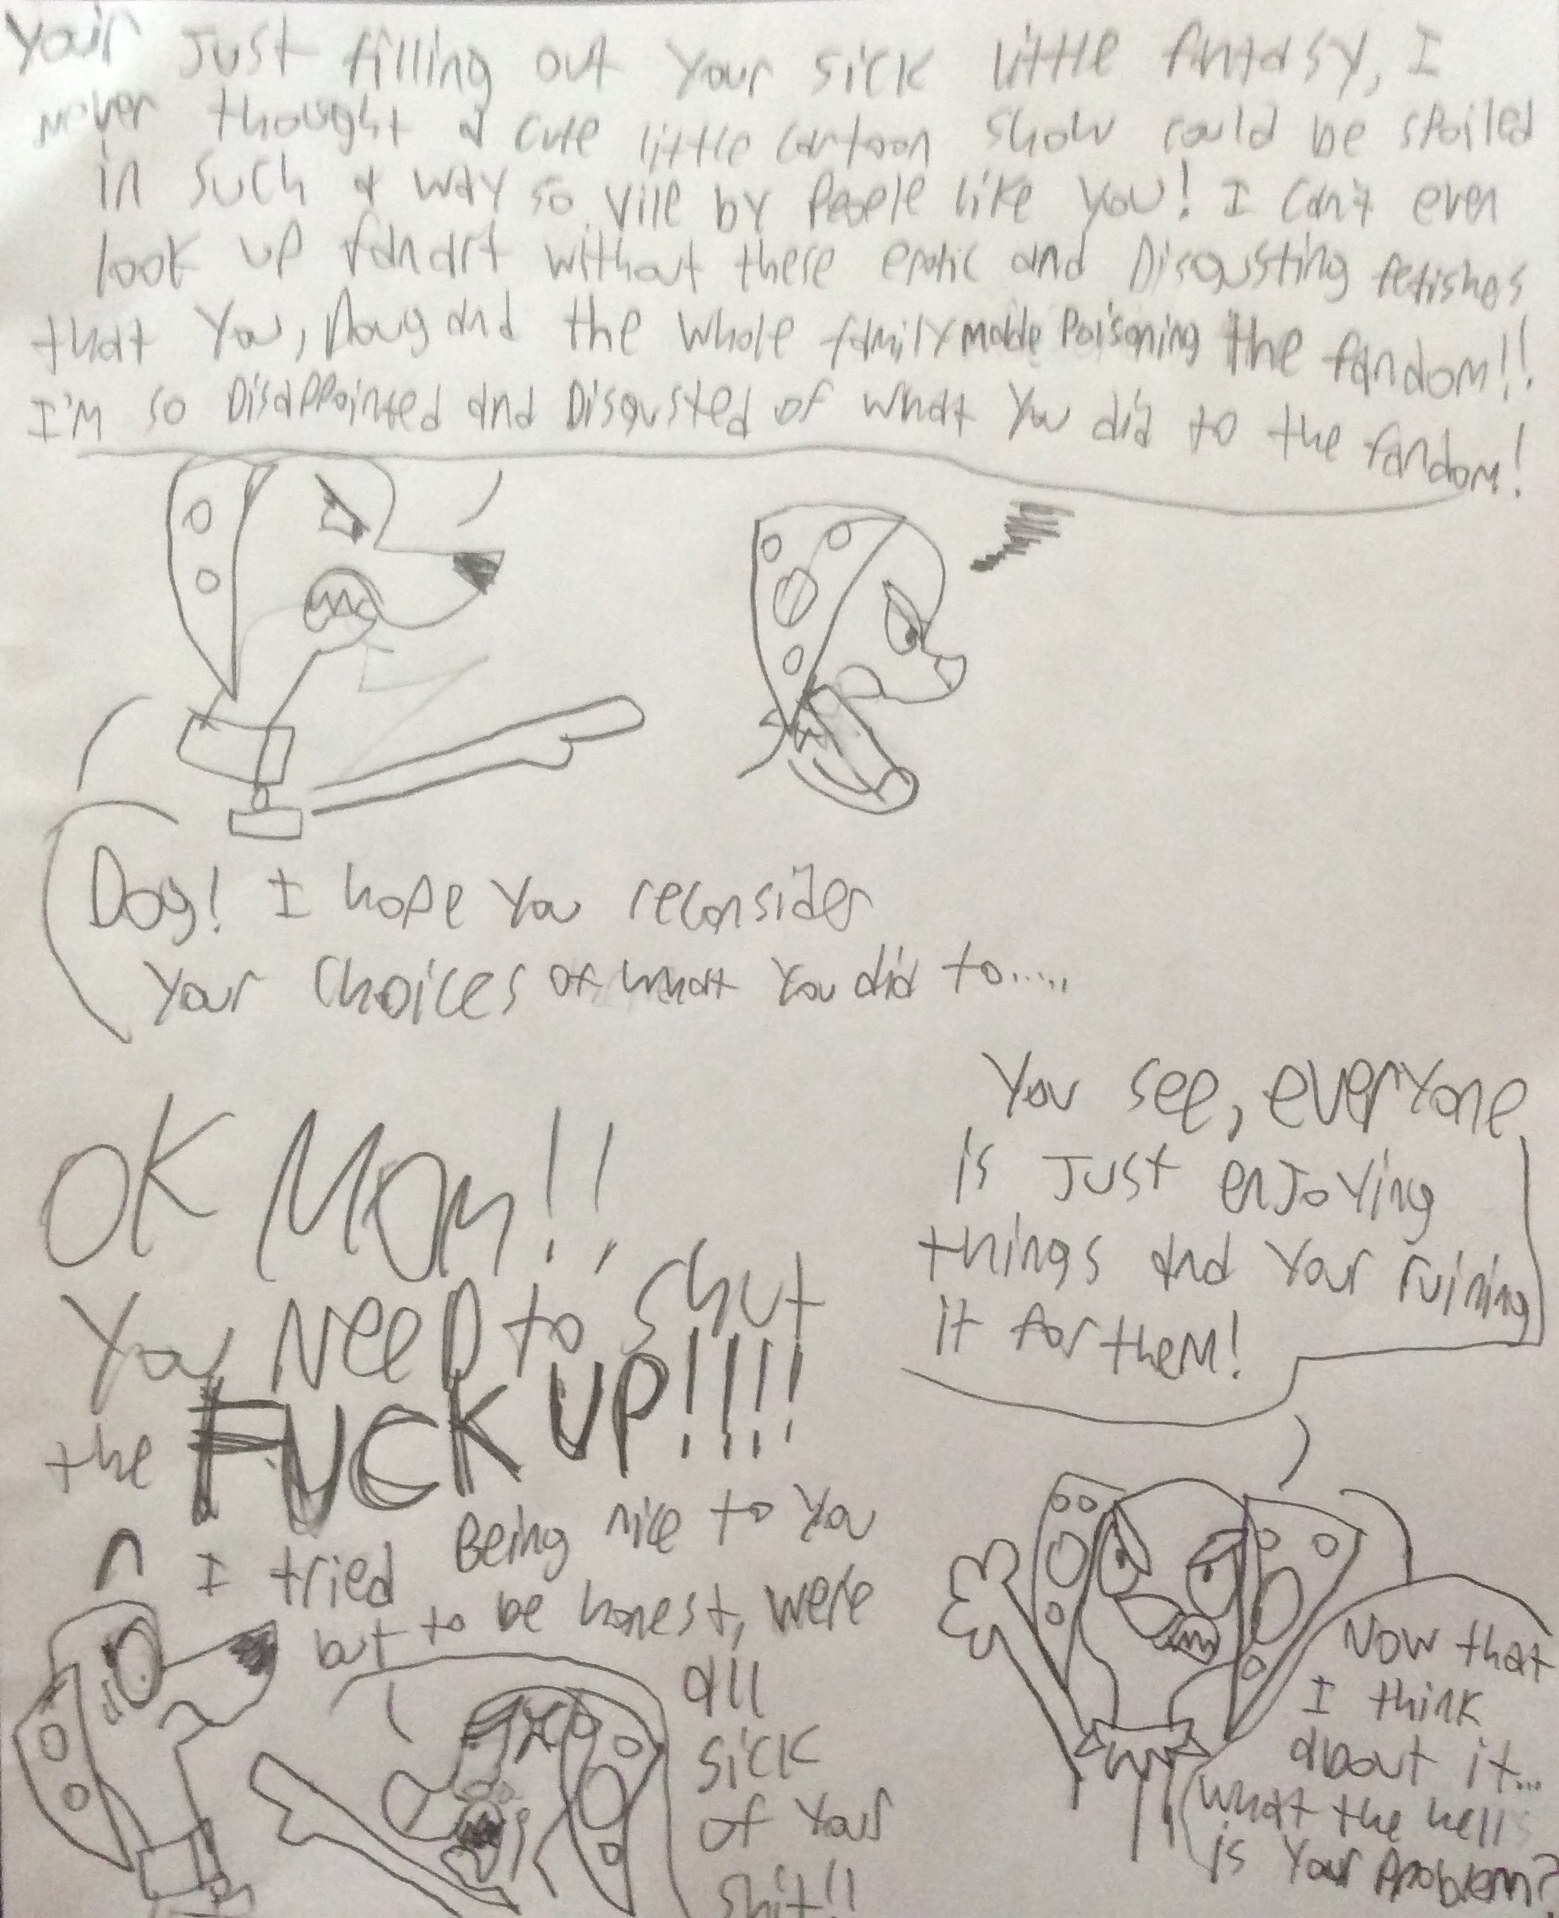 Your Just filling out Your sick little fantasy, I
never thought a cute little cartoon show could be spoiled
in such a way so vile by People like You! I can't even
look up fanart without these erotic and Disgusting fetishes
that You, Doug and the whole family made Poisoning the fandom!!
I'm so Disappointed and Disgusted of what You did to the fandom!
Dog! I hope You reconsider
Your Choices of what You did to.....
OK MOM!!
You Need to shut
the FUCK UP!!!!
I tried Being nice to You
but to be honest, were
all
sick
of Your
shit!!
You see, everyone
is Just enJoying
things and Your ruining
it for them!
Now that
I think
about it...
What the hell
is Your Problem?